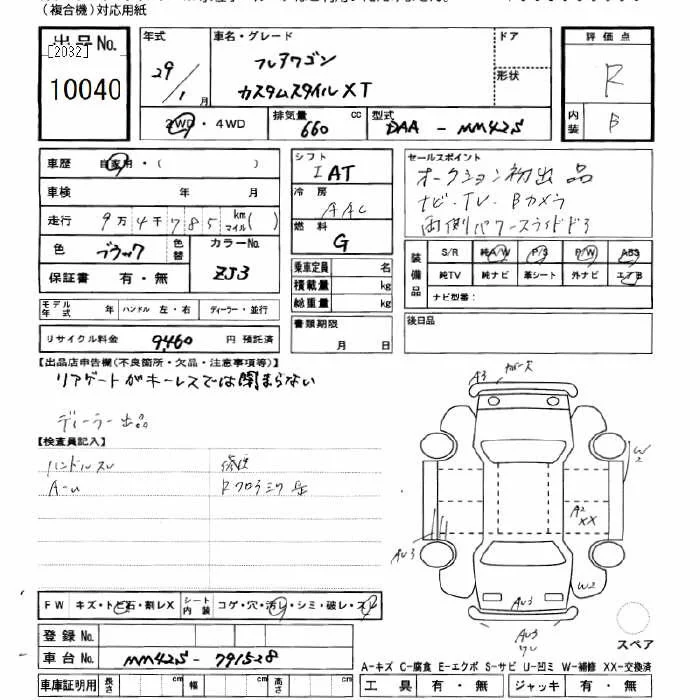 (複合機)対応用紙
出品No.
[2032]
10040
年式
29/1月
車名・グレード
フレアワゴン
カスタムスタイルXT
ドア
形状
評価点
R
内装
B
2WD・4WD
排気量
660 cc
型式
DAA - MM42S
車歴 自家用・( )
車検 年 月
走行 9万4千785 km マイル( )
色 ブラック 色替
カラーNo.
ZJ3
保証書 有・無
シフト
I AT
冷房
AAC
燃料
G
乗車定員 名
積載量 kg
総重量 kg
セールスポイント
オークション初出品
ナビ・TV・Bカメラ
両側パワースライドドア
装備品
S/R 純A/W P/S P/W ABS
純TV 純ナビ 革シート 外ナビ エアB
ナビ型番:
モデル年式 年 ハンドル 左・右 ディーラー・並行
リサイクル料金 9,460 円 預託済
書類期限
月 日
後日品
【出品店申告欄(不良箇所・欠品・注意事項等)】
リアゲートがキーレスでは閉まらない
ディーラー出品
【検査員記入】
ハンドルスレ
A-u
修復
A3
W2
A2
XX
AU3
W2
AU3
AU3
FW キズ・トビ石・割レX シート内装 コゲ・穴・汚レ・シミ・破レ・スレ
登録No.
車台No. MM42S-791528
車庫証明用 長さ cm 幅 cm 高さ cm
スペア
A-キズ C-腐食 E-エクボ S-サビ U-凹ミ W-補修 XX-交換済
工具 有・無 ジャッキ 有・無